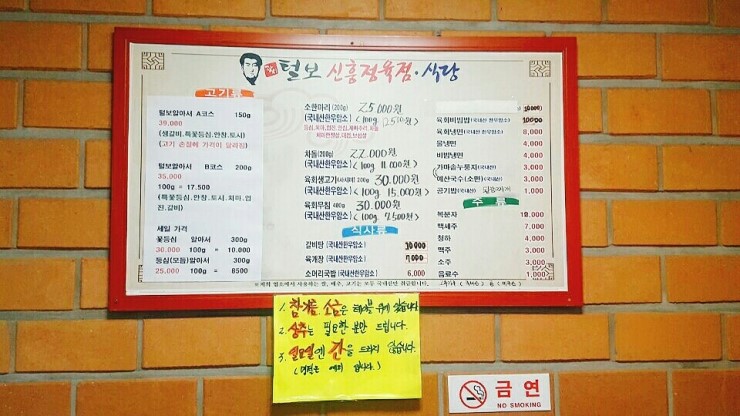 털보 신흥정육점·식당
고기류
털보알아서 A코스 150g
39,000
(생갈비.특꽃등심.안창.토시)
(고기 손질에 가격이 달라짐)
털보알아서 B코스 200g
35,000
100g = 17.500
(특꽃등심.안창.토시.치마.업
진.갈비)
세일 가격
꽃등심 알아서 300g
30.000 100g = 10.000
등심(모듬)알아서 300g
25.000 100g = 8500
소한마리 (200g) 25,000원
(국내산한우암소) (100g 12500원)
차돌(200g) 22.000원
(국내산한우암소) (100g 11.000원)
육회생고기(사시미) 200g 30.000원
(국내산한우암소) (100g 15,000원)
육회무침 400g 30.000원
(국내산한우암소) (100g 7.500원)
식사류
갈비탕 (국내산한우암소) 10000
육개장 (국내산한우암소) 7000
소머리국밥 (국내산한우암소) 6,000
육회비빔밥(국내산 한우암소) 10000
육회냉면(국내산 한우암소) 8,000
물냉면 4,000
비빔냉면 4,000
가마솥누룽지(국내산) 3,000
예산국수(소면)(국내산) 3,000
공기밥(국내산) 1,000
주류
복분자
백세주 7,000
청하 4,000
맥주 3,000
소주 3,000
음료수 1,000
1. 참기름. 소금은 테이블 위에 있습니다
2. 상추는 필요한 분만 드립니다.
3. 일요일엔 간을 드리지 않습니다.
(명절은 예외 입니다.)
금연
NO SMOKING